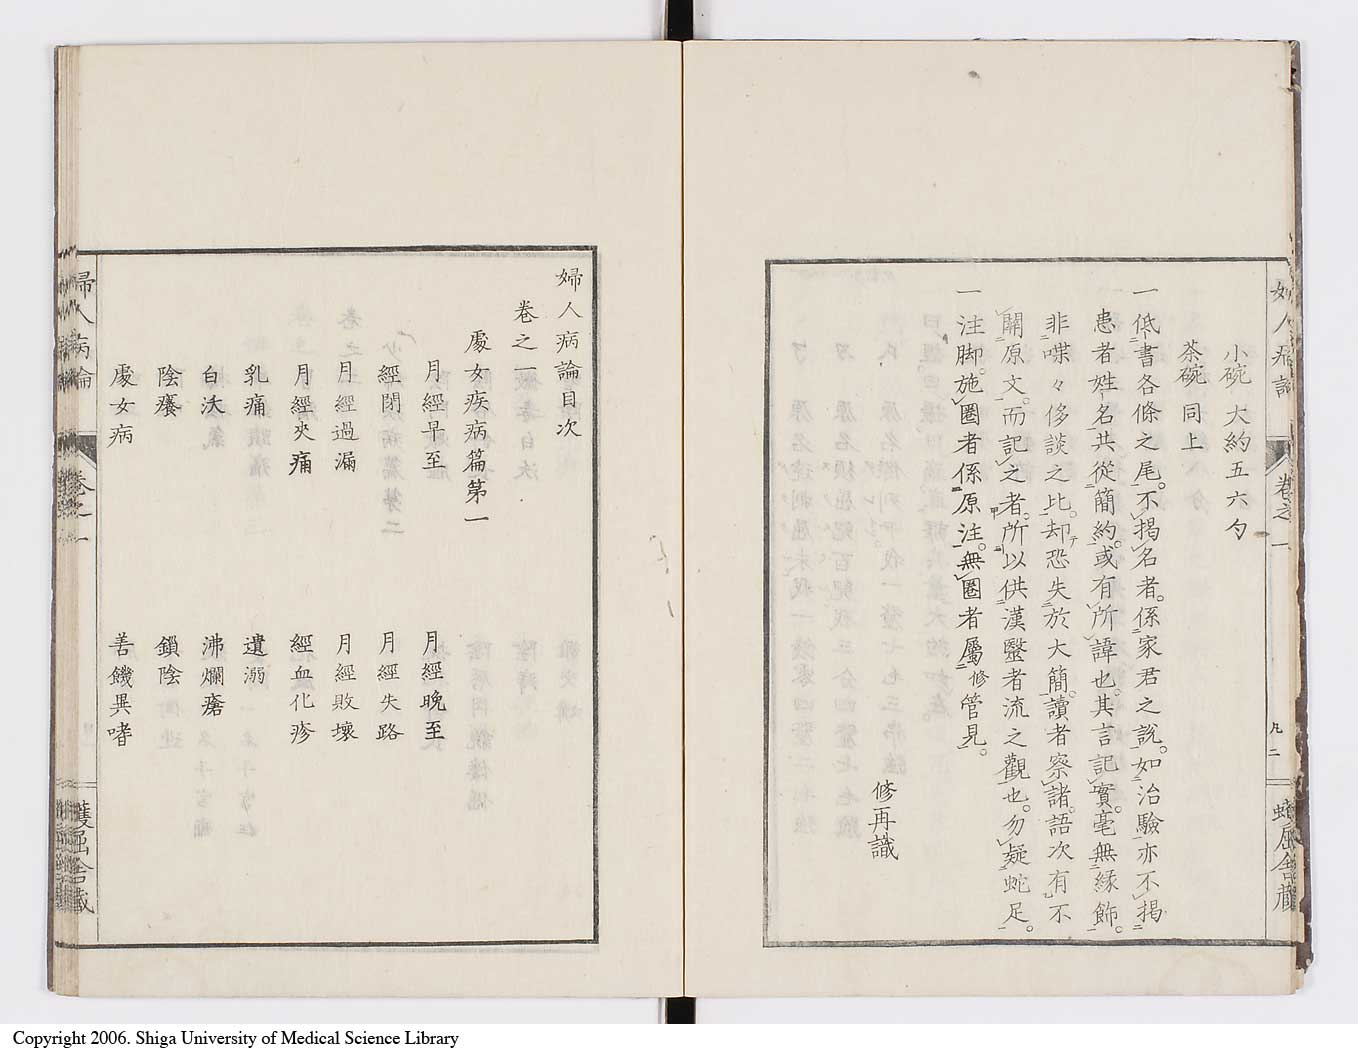 小碗 大約五六勺
茶碗 同上
一低書各條之尾。不揭名者。係家君之說。如治驗亦不揭
患者姓名共從簡約。或有所諱也。其言記實。毫無緣飾。
非喋々侈談之比。却恐失於大簡。讀者察諸。語次有不
關原文。而記之者。所以供漢醫者流之觀也。勿疑蛇足。
一注脚。施圈者係原注。無圈者屬修管見。
修再識
卷之一
凡二
婦人病論目次
卷之一
處女疾病篇第一
月經早至 月經晚至
經閉 月經失路
月經過漏 月經敗壞
月經夾痛 經血化疹
乳痛 遺溺
白沃 沸爛瘡
陰癢 鎖陰
處女病 善饑異嗜
婦人病論
卷之一
Copyright 2006. Shiga University of Medical Science Library